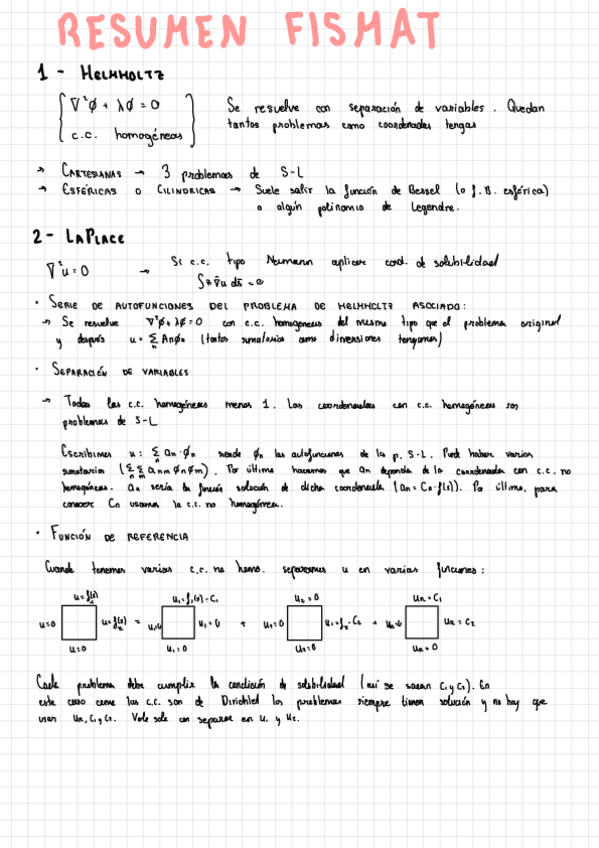 RESUMEN FISMAT
1 - HELMHOLTZ
∇²ϕ + λϕ = 0
c.c. homogéneas
Se resuelve con separación de variables. Quedan
tantos problemas como coordenadas tengas
→ CARTESIANAS → 3 problemas de S-L
→ ESFÉRICAS O CILINDRICAS → Suele salir la función de Bessel (o f. B. esférica)
o algún polinomio de Legendre.
2 - LAPLACE
∇²u = 0 → Si c.c. tipo Neumann aplicar cond. de solubilidad
· SERIE DE AUTOFUNCIONES DEL PROBLEMA DE HELMHOLTZ ASOCIADO:
→ Se resuelve ∇²ϕ + λϕ = 0 con c.c. homogéneas del mismo tipo que el problema original
y después u = Σ Anϕn (tantos sumatorios como dimensiones tengamos)
n
· SEPARACIÓN DE VARIABLES
→ Todas las c.c. homogéneas menos 1. Las coordenadas con c.c. homogéneas son
problemas de S-L
Escribimos u = Σ an·ϕn siendo ϕn las autofunciones de la p. S-L. Puede haber varios
sumatorios (Σ Σ anm ϕn ϕm). Por último hacemos que an dependa de la coordenada con c.c. no
homogéneas. an sería la función solución de dicha coordenada (an = Cn·f(r)). Por último, para
conocer Cn usamos la c.c. no homogénea.
· FUNCIÓN DE REFERENCIA
Cuando tenemos varias c.c. no homo. separamos u en varias funciones:
u=0 u=0 = u₁=0 u₁=0 + u₂=0 + uR = C₁ uR = C₂ uR = 0
Cada problema debe cumplir la condición de solubilidad (así se sacan C₁ y C₂). En
este caso como las c.c. son de Dirichlet los problemas siempre tienen solución y no hay que
usar uR, C₁ y C₂. Vale solo con separar en u₁ y u₂.